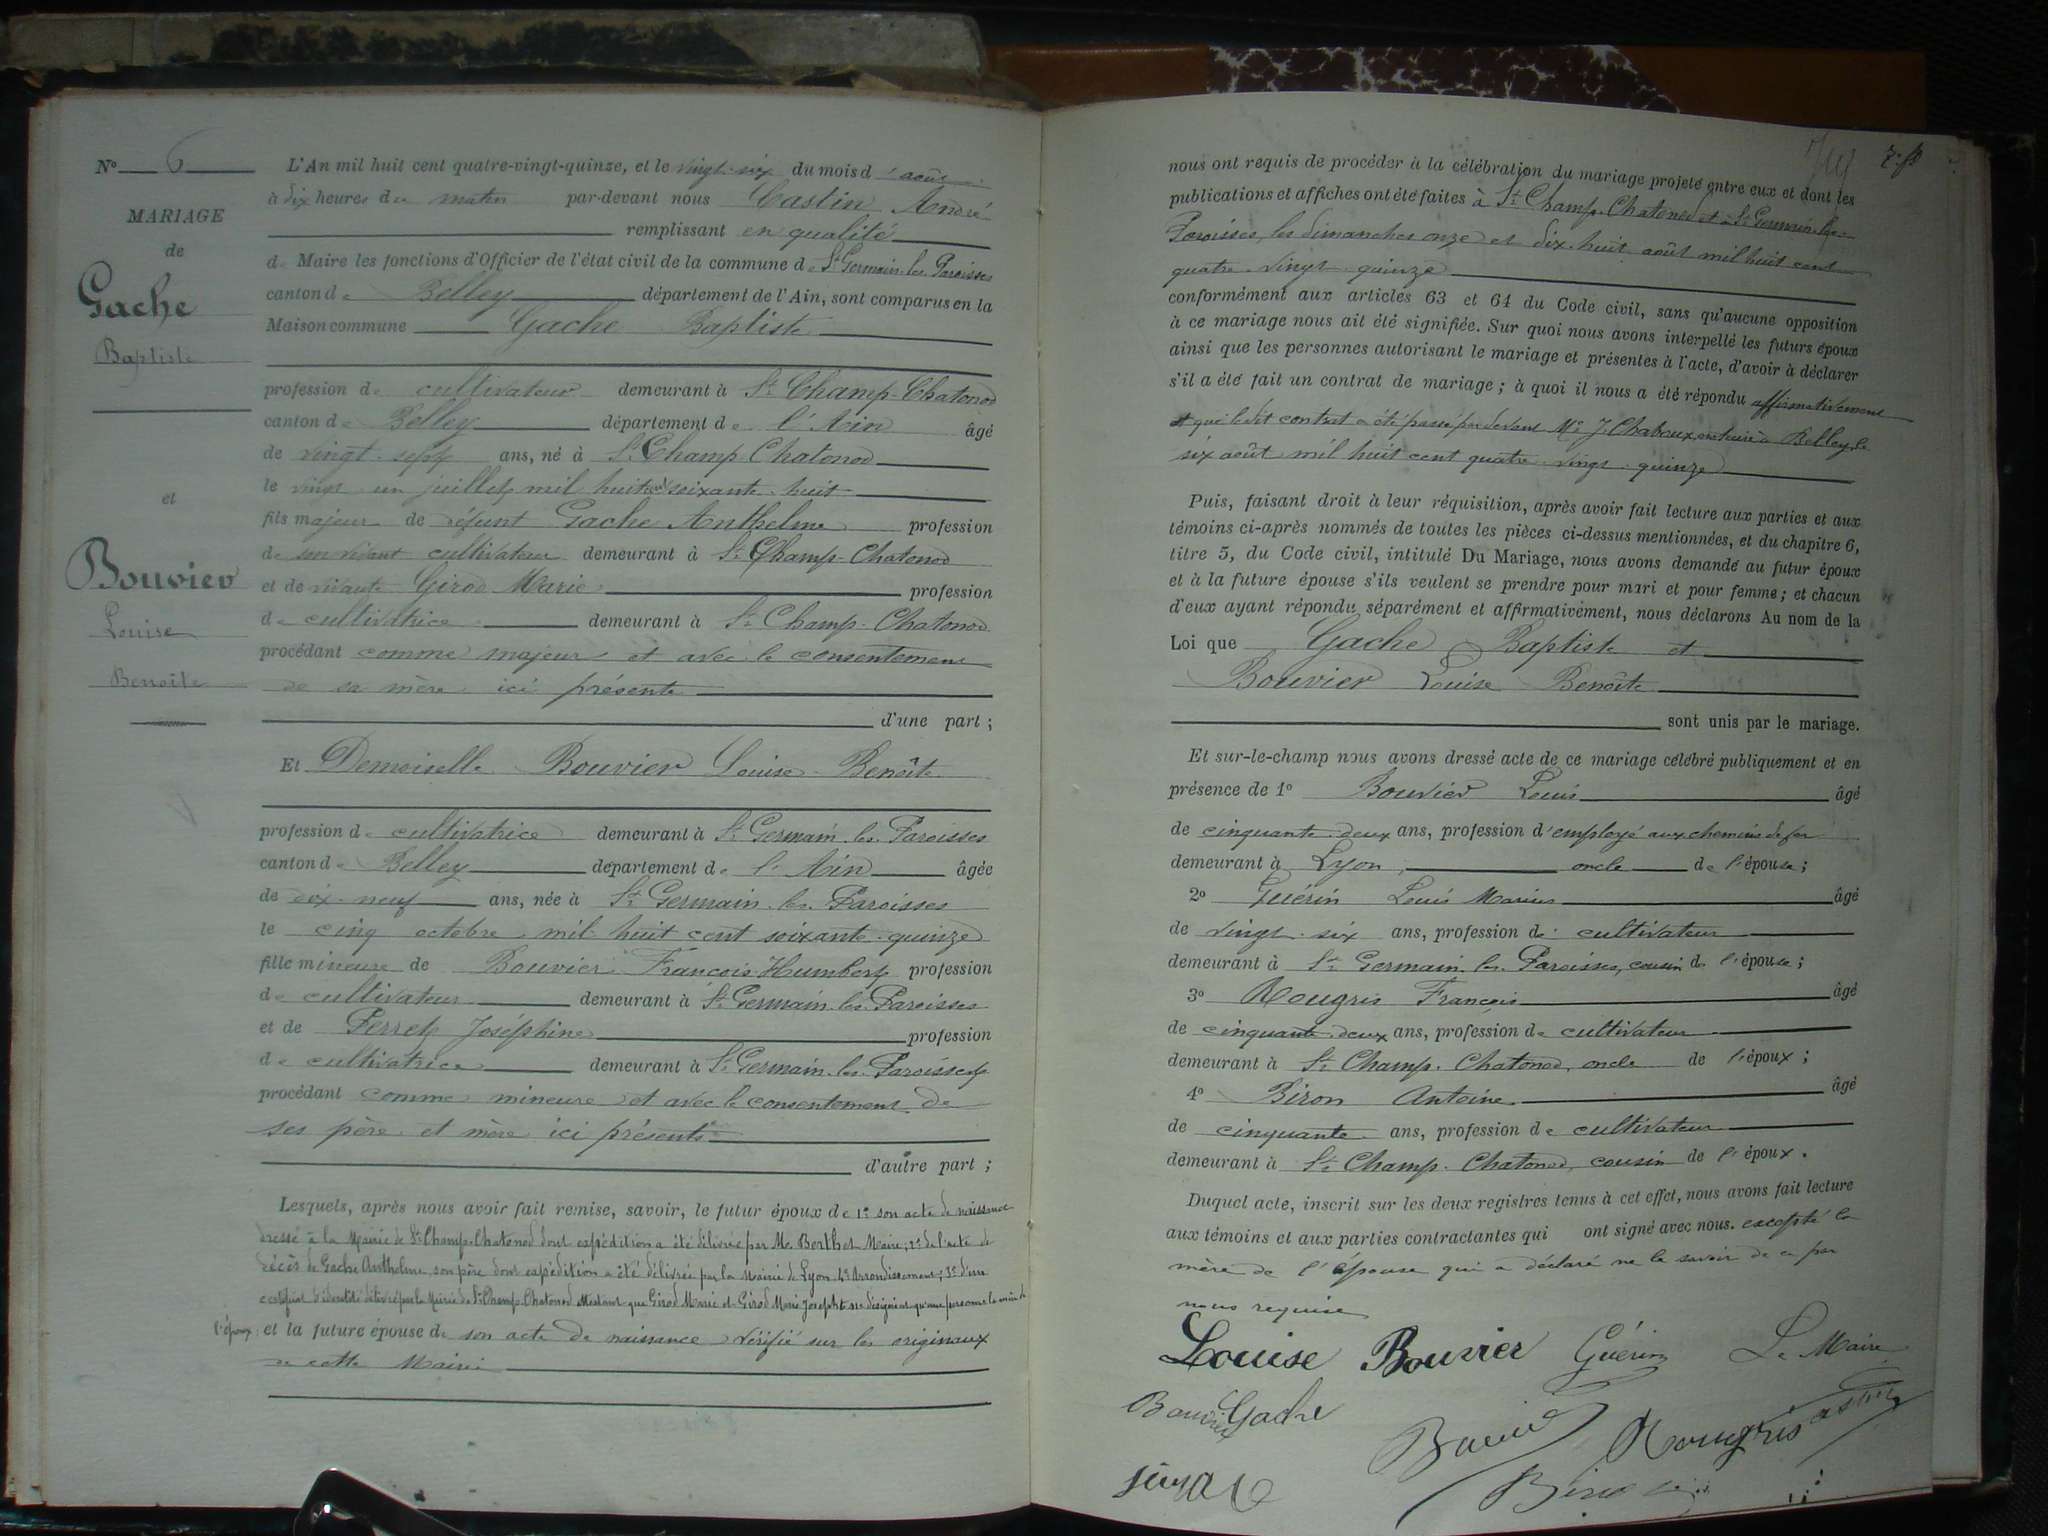 N° 6
MARIAGE
de
Gache
Baptiste
et
Bouvier
Louise
Benoîte
L'An mil huit cent quatre-vingt-quinze, et le vingt-six du mois d'août
à dix heures du matin par-devant nous Castin André
remplissant en qualité
de Maire les fonctions d'Officier de l'état civil de la commune de St Germain-les-Paroisses
canton de Belley département de l'Ain, sont comparus en la
Maison commune Gache Baptiste
profession de cultivateur demeurant à St Champ-Chatonod
canton de Belley département de l'Ain âgé
de vingt-sept ans, né à St Champ Chatonod
le vingt-un juillet mil huit cent soixante-huit
fils majeur de défunt Gache Anthelme profession
de son vivant cultivateur demeurant à St Champ-Chatonod
et de vivante Girod Marie profession
de cultivatrice demeurant à St Champ-Chatonod
procédant comme majeur et avec le consentement
de sa mère ici présente
d'une part ;
Et Demoiselle Bouvier Louise-Benoîte
profession de cultivatrice demeurant à St Germain-les-Paroisses
canton de Belley département de l'Ain âgée
de dix-neuf ans, née à St Germain-les-Paroisses
le cinq octobre mil huit cent soixante-quinze
fille mineure de Bouvier François-Humbert profession
de cultivateur demeurant à St Germain-les-Paroisses
et de Perret Joséphine profession
de cultivatrice demeurant à St Germain-les-Paroisses
procédant comme mineure et avec le consentement de
ses père et mère ici présents
d'autre part ;
Lesquels, après nous avoir fait remise, savoir, le futur époux de 1° son acte de naissance
dressé à la Mairie de St Champ-Chatonod dont expédition a été délivrée par Mr Berthet Maire ; 2° de l'acte de
décès de Gache Anthelme son père dont expédition a été délivrée par la Mairie de Lyon 4e Arrondissement ; 3° d'un
certificat d'identité délivré par le Mairie de St Champ-Chatonod attestant que Girod Marie et Girod Marie Josephte ne désignent qu'une personne la mère de
l'époux ; et la future épouse de son acte de naissance vérifié sur les originaux
de cette Mairie
7. f°
nous ont requis de procéder à la célébration du mariage projeté entre eux et dont les
publications et affiches ont été faites à St Champ-Chatonod et à St Germain-les-
Paroisses, les dimanches onze et dix-huit août mil huit cent
quatre-vingt-quinze
conformément aux articles 63 et 64 du Code civil, sans qu'aucune opposition
à ce mariage nous ait été signifiée. Sur quoi nous avons interpellé les futurs époux
ainsi que les personnes autorisant le mariage et présentes à l'acte, d'avoir à déclarer
s'il a été fait un contrat de mariage ; à quoi il nous a été répondu affirmativement
et que ledit contrat a été passé par devant Me J. Chaboux, notaire à Belley, le
six août mil huit cent quatre-vingt-quinze
Puis, faisant droit à leur réquisition, après avoir fait lecture aux parties et aux
témoins ci-après nommés de toutes les pièces ci-dessus mentionnées, et du chapitre 6,
titre 5, du Code civil, intitulé Du Mariage, nous avons demandé au futur époux
et à la future épouse s'ils veulent se prendre pour mari et pour femme ; et chacun
d'eux ayant répondu séparément et affirmativement, nous déclarons Au nom de la
Loi que Gache Baptiste et
Bouvier Louise Benoîte
sont unis par le mariage.
Et sur-le-champ nous avons dressé acte de ce mariage célébré publiquement et en
présence de 1° Bouvier Louis âgé
de cinquante-deux ans, profession d'employé aux chemins de fer
demeurant à Lyon, oncle de l'épouse ;
2° Guérin Louis Marius âgé
de vingt-six ans, profession de cultivateur
demeurant à St Germain-les-Paroisses, cousin de l'épouse ;
3° Rougris François âgé
de cinquante-deux ans, profession de cultivateur
demeurant à St Champ-Chatonod, oncle de l'époux ;
4° Biron Antoine âgé
de cinquante ans, profession de cultivateur
demeurant à St Champ-Chatonod, cousin de l'époux.
Duquel acte, inscrit sur les deux registres tenus à cet effet, nous avons fait lecture
aux témoins et aux parties contractantes qui ont signé avec nous. excepté la
mère de l'épouse qui a déclaré ne le savoir de ce par
nous requise
Louise Bouvier Guérin Le Maire
Bouvier Gache
Bouvier Rougris Castin
Biron